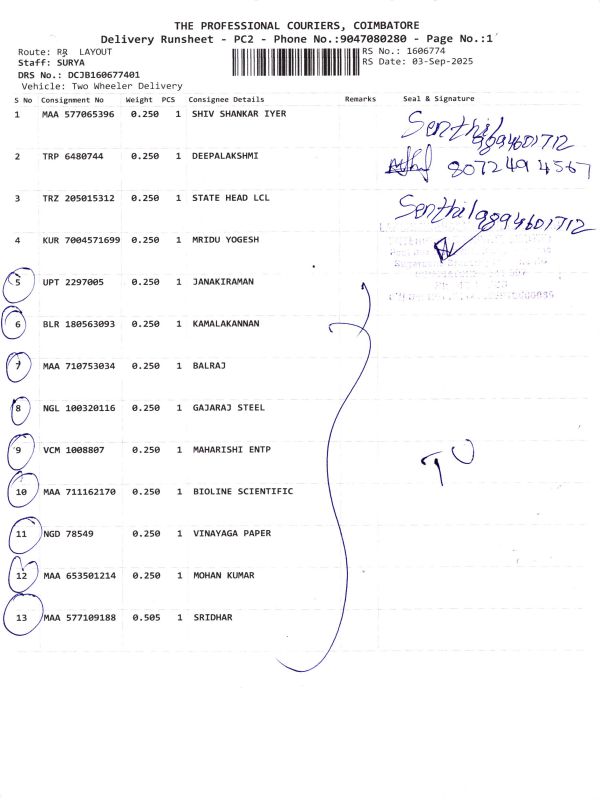 THE PROFESSIONAL COURIERS, COIMBATORE
Delivery Runsheet - PC2 - Phone No.:9047080280 - Page No.:1
Route: RR LAYOUT
RS No.: 1606774
Staff: SURYA
RS Date: 03-Sep-2025
DRS No.: DCJB160677401
Vehicle: Two Wheeler Delivery
S No Consignment No Weight PCS Consignee Details Remarks Seal & Signature
1 MAA 577065396 0.250 1 SHIV SHANKAR IYER Senthil 9894601712
2 TRP 6480744 0.250 1 DEEPALAKSHMI 8072494567
3 TRZ 205015312 0.250 1 STATE HEAD LCL Senthil 9894601712
4 KUR 7004571699 0.250 1 MRIDU YOGESH
5 UPT 2297005 0.250 1 JANAKIRAMAN
6 BLR 180563093 0.250 1 KAMALAKANNAN
7 MAA 710753034 0.250 1 BALRAJ
8 NGL 100320116 0.250 1 GAJARAJ STEEL
9 VCM 1008807 0.250 1 MAHARISHI ENTP
10 MAA 711162170 0.250 1 BIOLINE SCIENTIFIC
11 NGD 78549 0.250 1 VINAYAGA PAPER
12 MAA 653501214 0.250 1 MOHAN KUMAR
13 MAA 577109188 0.505 1 SRIDHAR